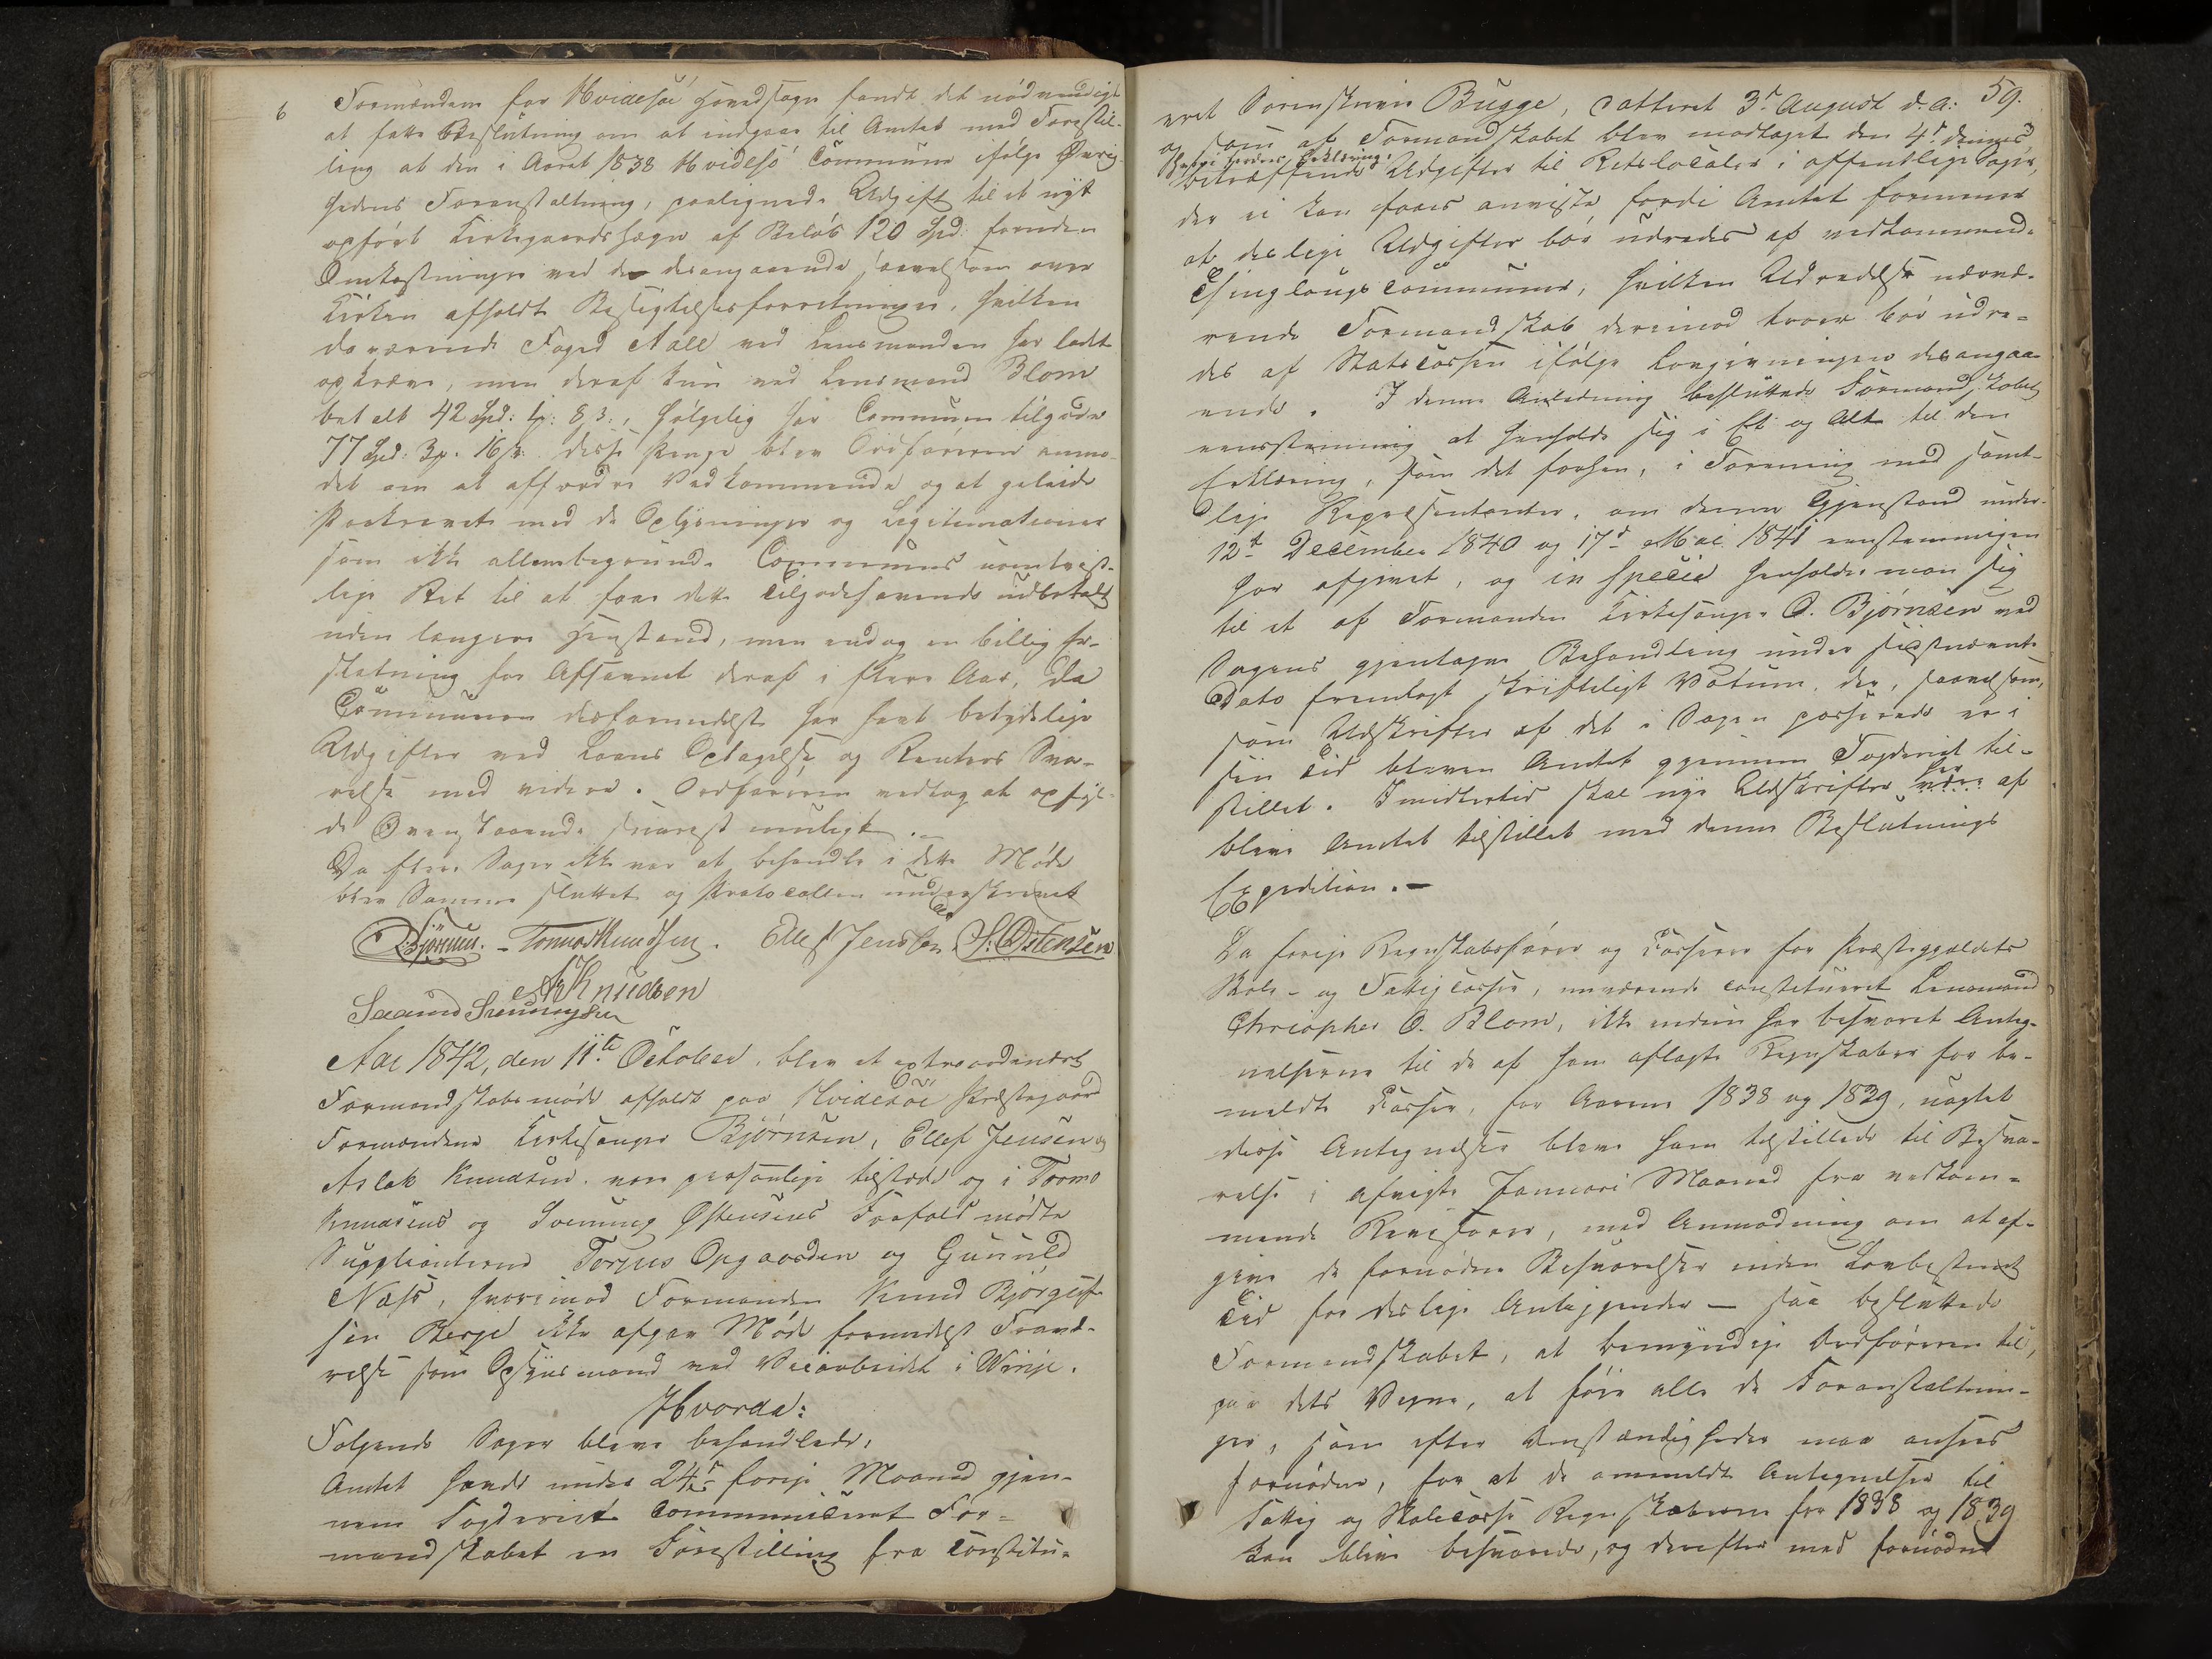 6
Formændene for Hvidesøe Hovedsogn fandt det nødvendigt
at fatte Beslutning om at indgaae til Amtet med Forestil-
ling at den i Aaret 1838 Hvidesø Commune ifølge Øvrig-
hedens Foranstaltning, paalignede Udgift til et nyt
opført Kirkegaardshegn af Beløb 120 Spd: foruden
Omkostninger ved de desangaaende saavelsom over
Kirken afholdte Besigtelsesforretninger, hvilken
daværende Foged Aall ved Lensmanden har ladet
opkræve, men deraf kun ved Lensmand Blom
betalt 42 Spd: 1 8 s:, følgelig har Communen tilgode
77 Spd: 3 16 s: disse Penge blev Ordføreren anmo-
det om at affordre Vedkommende og at geleide
Paakravet med de Oplysninger og Legitimationer
som ikke allene begrunde Communens uomtvist-
lige Ret til at faae dette Tilgodehavende udbetalt
uden længere Henstand, men endog en billig Er-
statning for Afsavnet deraf i flere Aar, da
Communen desformedelst har havt betydelige
Udgifter ved Laans Optagelse og Renters Sva-
relse med videre. Ordføreren vedtog at opfyl-
de Ovenstaaende snarest muligt.-
Da flere Sager ikke var at behandle i dette Møde
blev Samme sluttet og Protocollen underskrevet
Bjørnsen. - Tormo Knudsen. Ellef Jensen S: Østensen
A Knudsen
Saamund
Aar 1842, den 11te October, blev et extraordinært
Formandskabsmøde afholdt paa Hvidesøe Præstegaard
Formændene Kirkesanger Bjørnsen, Ellef Jensen og
Aslak Knudsen vare personlige tilstede og i Tormo
Knudsens og Svenung Østensens Forfald mødte
Suppleanterne Torjus Opgaarden og Gunuld
Næss, hvorimod Formanden Knud Bjørgulf-
sen Berge ikke afgav Møde formedelst Fravæ-
relse som Opsynsmand ved Veiarbeidet i Winje.
Hvorda:
Følgende Sager bleve behandlede:
Amtet havde under 24de forrige Maaned gjen-
nem Fogderiet communiceret For-
mandskabet en Forestilling fra Constitu-
59.
eret Sorenskriver Bugge, datteret 3de August d. A:
og som af Formandskabet blev modtaget den 4de dennes
Erklæring,
betræffende Udgifter til Retslocaler i offentlige Sager,
der ei kan faaes anviste fordi Amtet formener
at deslige Udgifter bør udredes af vedkommende
Thinglaugs Communer, hvilken Udredelse nærvæ-
rende Formandskab derimod troer bør udre-
des af Statscassen ifølge Lovgivningen desangaa-
ende. I denne Anledning besluttede Formandskabet
eensstemmig at henholde sig i Et og Alt til den
Erklæring, som det forhen, i Forening med samt-
lige Repræsentanter, om denne Gjenstand under
12te December 1840 og 17de Mai 1841 eenstemmigen
har afgivet, og in specie henholder man sig
til et af Formanden Kirkesanger O. Bjørnsen ved
Sagens gjentagne Behandling under sidstnævnte
Dato fremlagt skriftligt Votum, der, saavelsom,
som Udskrifter af det i Sagen passerede er i
sin Tid bleven Amtet gjennem Fogderiet til-
stillet. Imidlertid skal nye Udskrifter her af
blive Amtet tilstillet med denne Beslutnings
Expedition.-
Da forrige Regnskabsfører og Casserer for Præstegjeldets
Skole- og Fattigcasser, nuværende constitueret Lensmand
Christopher O. Blom, ikke endnu har besvaret Anteg-
nelserne til de af ham aflagte Regnskaber for be-
meldte Casser, for Aarene 1838 og 1839, uagtet
disse Antegnelser bleve ham tilstillede til Besva-
relse i afvigte Januari Maaned fra vedkom-
mende Revisorer, med Anmodning om at af-
give de fornødne Besvarelser inden Lovbestemt
Tid for deslige Anliggender - saa besluttede
Formandskabet, at bemyndige Ordføreren til,
paa dets Vegne, at føie alle de Foranstaltnin-
ger, som efter Omstændigheder maa ansees
fornødne, for at de ommeldte Antegnelser til
Fattig og Skolecasse Regnskaberne for 1838 og 1839
kan blive besvarede, og derefter med fornødne